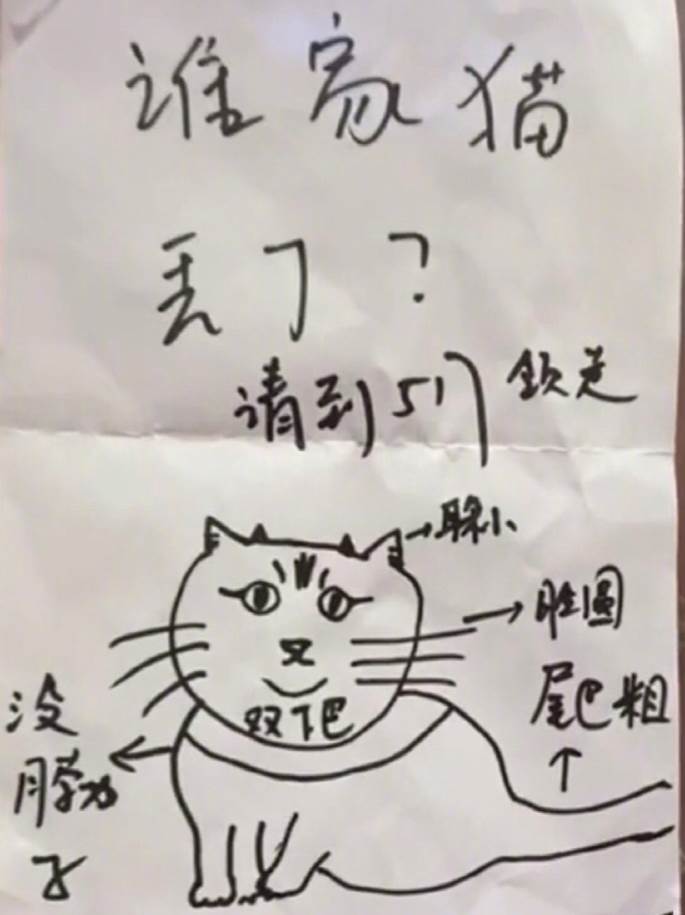 谁家猫
丢了？
请到517领走
耳朵小
脸圆
尾巴粗
双下巴
没
脖
子